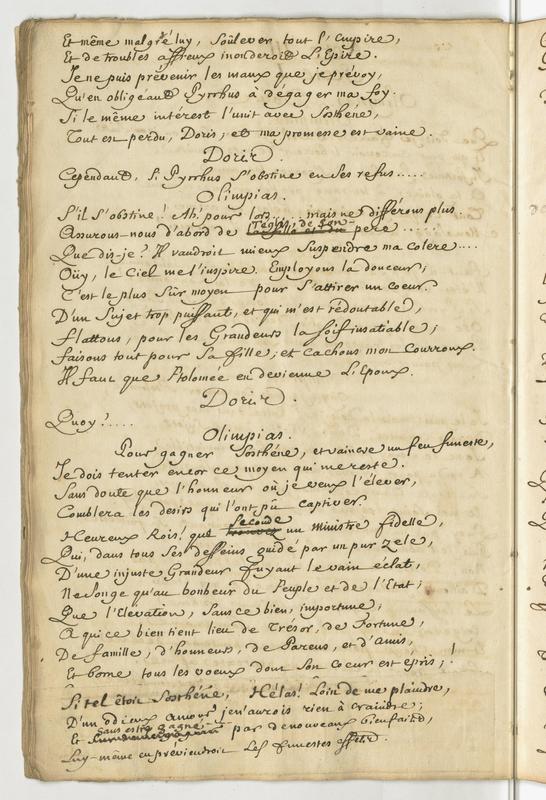 Et même malgré luy, Soûlever tout l'Empire,
Et de troubles affreux inonderoit L'Epire.
Je ne puis prévenir les maux que je prévoy,
Qu'en obligeant Pyrrhus à dégager ma foy.
Si le même intérest l'unit avec Sosthéne,
Tout est perdu, Doris; et ma promesse est vaine.
Doris.
Cependant, Si Pyrrhus s'obstine en ses refus.....
Olimpias.
S'il s'obstine! Ah! pour lors..... mais ne différons plus.
Théglis, de son
Assurons-nous d'abord de pere.....
Que dis-je? Il vaudroit mieux Suspendre ma colere....
Oüy, le Ciel me l'inspire. Employons la douceur;
C'est le plus Sûr moyen pour s'attirer un Coeur.
D'un Sujet trop puissant, et qui m'est rédoutable,
flattons, pour les Grandeurs la soif insatiable;
faisons tout pour Sa fille; et Cachons mon Courroux.
Il faut que Ptolomée en devienne L'Epoux.
Doris.
Quoy!.....
Olimpias.
Pour gagner Sosthéne, et vaincre un feu funeste,
Je dois tenter encor ce moyen qui me reste.
Sans doute que l'honneur où je veux l'élever,
Comblera les desirs qui l'ont pû Captiver.
Seconde
Heureux Rois! que un Ministre fidelle,
Qui, dans tous Ses desseins guidé par un pur zele,
D'une injuste Grandeur fuyant le vain éclat,
Ne songe qu'au bonheur du Peuple et de l'Etat;
Que l'Elévation, Sans ce bien, importune;
A qui ce bien tient lieu de Trésor, de Fortune,
De famille, d'honneurs, de Parens, et d'amis,
Et borne tous les voeux dont Son Coeur est épris;!
Si tel étoit Sosthéne, Hélas! Loin de me plaindre,
D'un odieux amour je n'aurois rien à Craindre;
Sans estre gagné
Et par de nouveaux bienfaits,
Luy-même en préviendroit Les funestes effets.